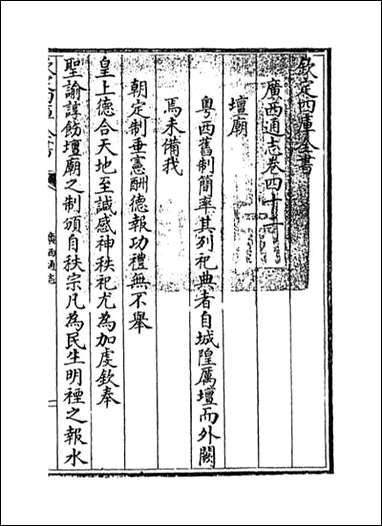 欽定四庫全書
廣西通志卷四十二
壇廟
粤西舊制簡率其列祀典者自城隍厲壇而外闕
焉未備我
朝定制垂憲酬德報功禮無不舉
皇上德合天地至誠感神秩祀尤為加䖍欽奉
聖諭諄飭壇廟之制頒自秩宗凡為民生明禋之報水
廣西通志